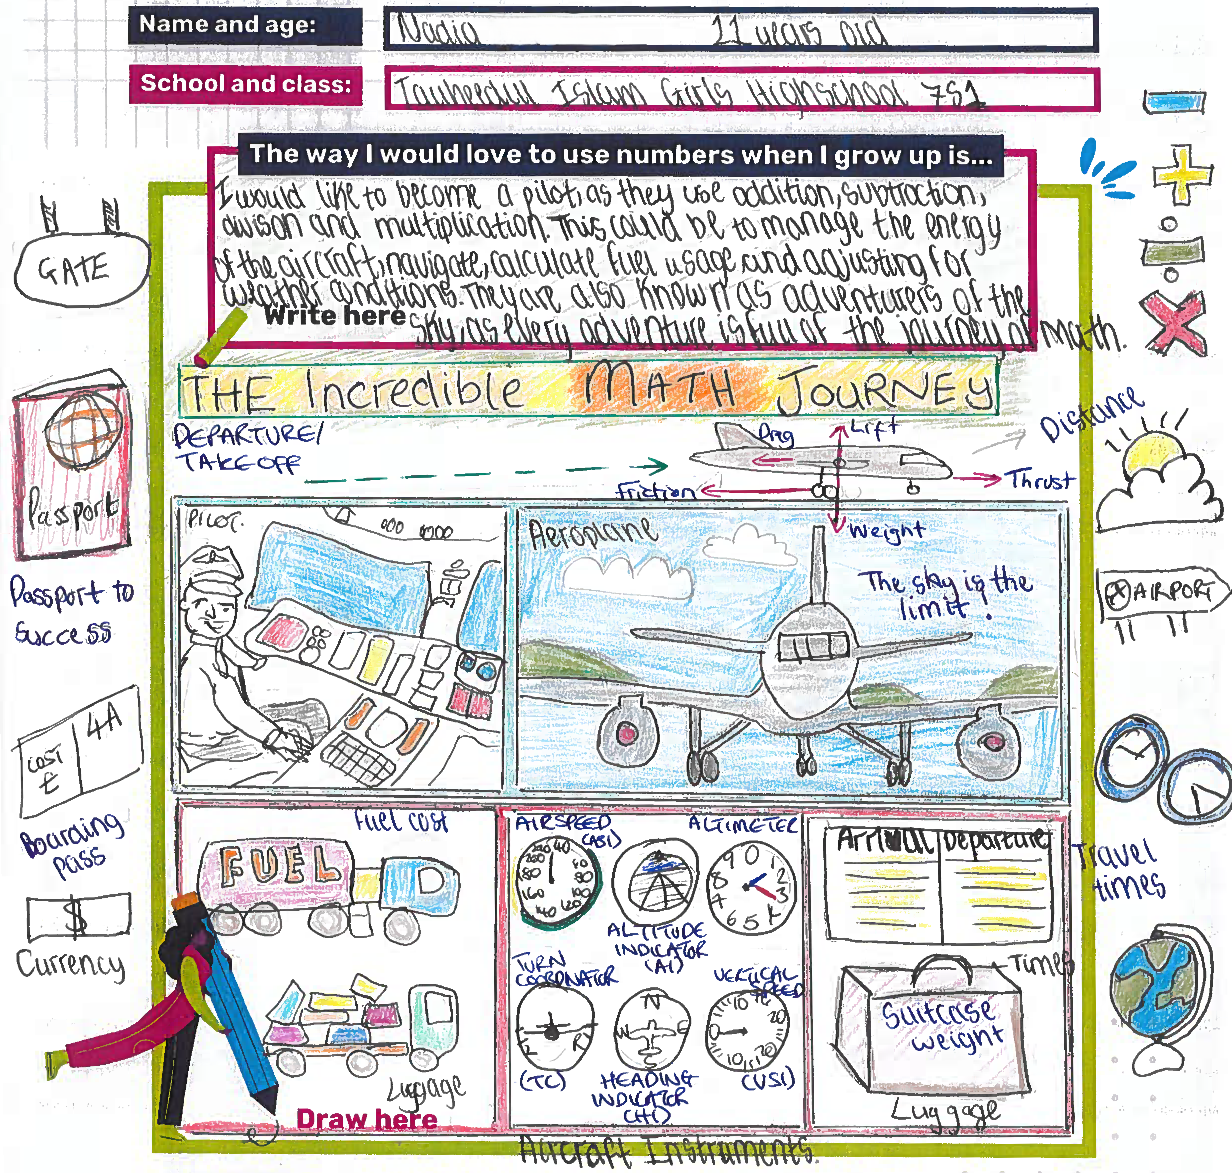 Name and age: Nadia 11 years old
School and class: Tauheedul Islam Girls Highschool 7S1
The way I would love to use numbers when I grow up is...
I would like to become a pilot, as they use addition, subtraction,
divison and multiplication. This could be to manage the energy
of the aircraft, navigate, calculate fuel usage and adjusting for
weather conditions. They are also known as adventurers of the
Write here
sky, as every adventure is full of the journey of math.
GATE
THE Incredible MATH JOURNEY
DEPARTURE/
TAKE OFF
Drag
Lift
Distance
Friction
Thrust
Weight
Passport
Passport to
Success
PILOT
Aeroplane
The sky is the
limit!
AIRPORT
COST
£
4A
Boarding
pass
$
Currency
Fuel cost
FUEL
Luggage
Draw here
AIRSPEED
(ASI)
ALTIMETER
200 40
180 60
80
160
140 120
9 0 1
8 2
7 3
6 5 4
ALTITUDE
INDICATOR
(AI)
TURN
COORDNATOR
VERTICAL
SPEED
L R
N
W E
S
10
20
0
10 15 20
(TC)
HEADING
INDICATOR
(HI)
(VSI)
Aircraft Instruments.
Arrival Departure
Times
Suitcase
weight
Luggage
Travel
times